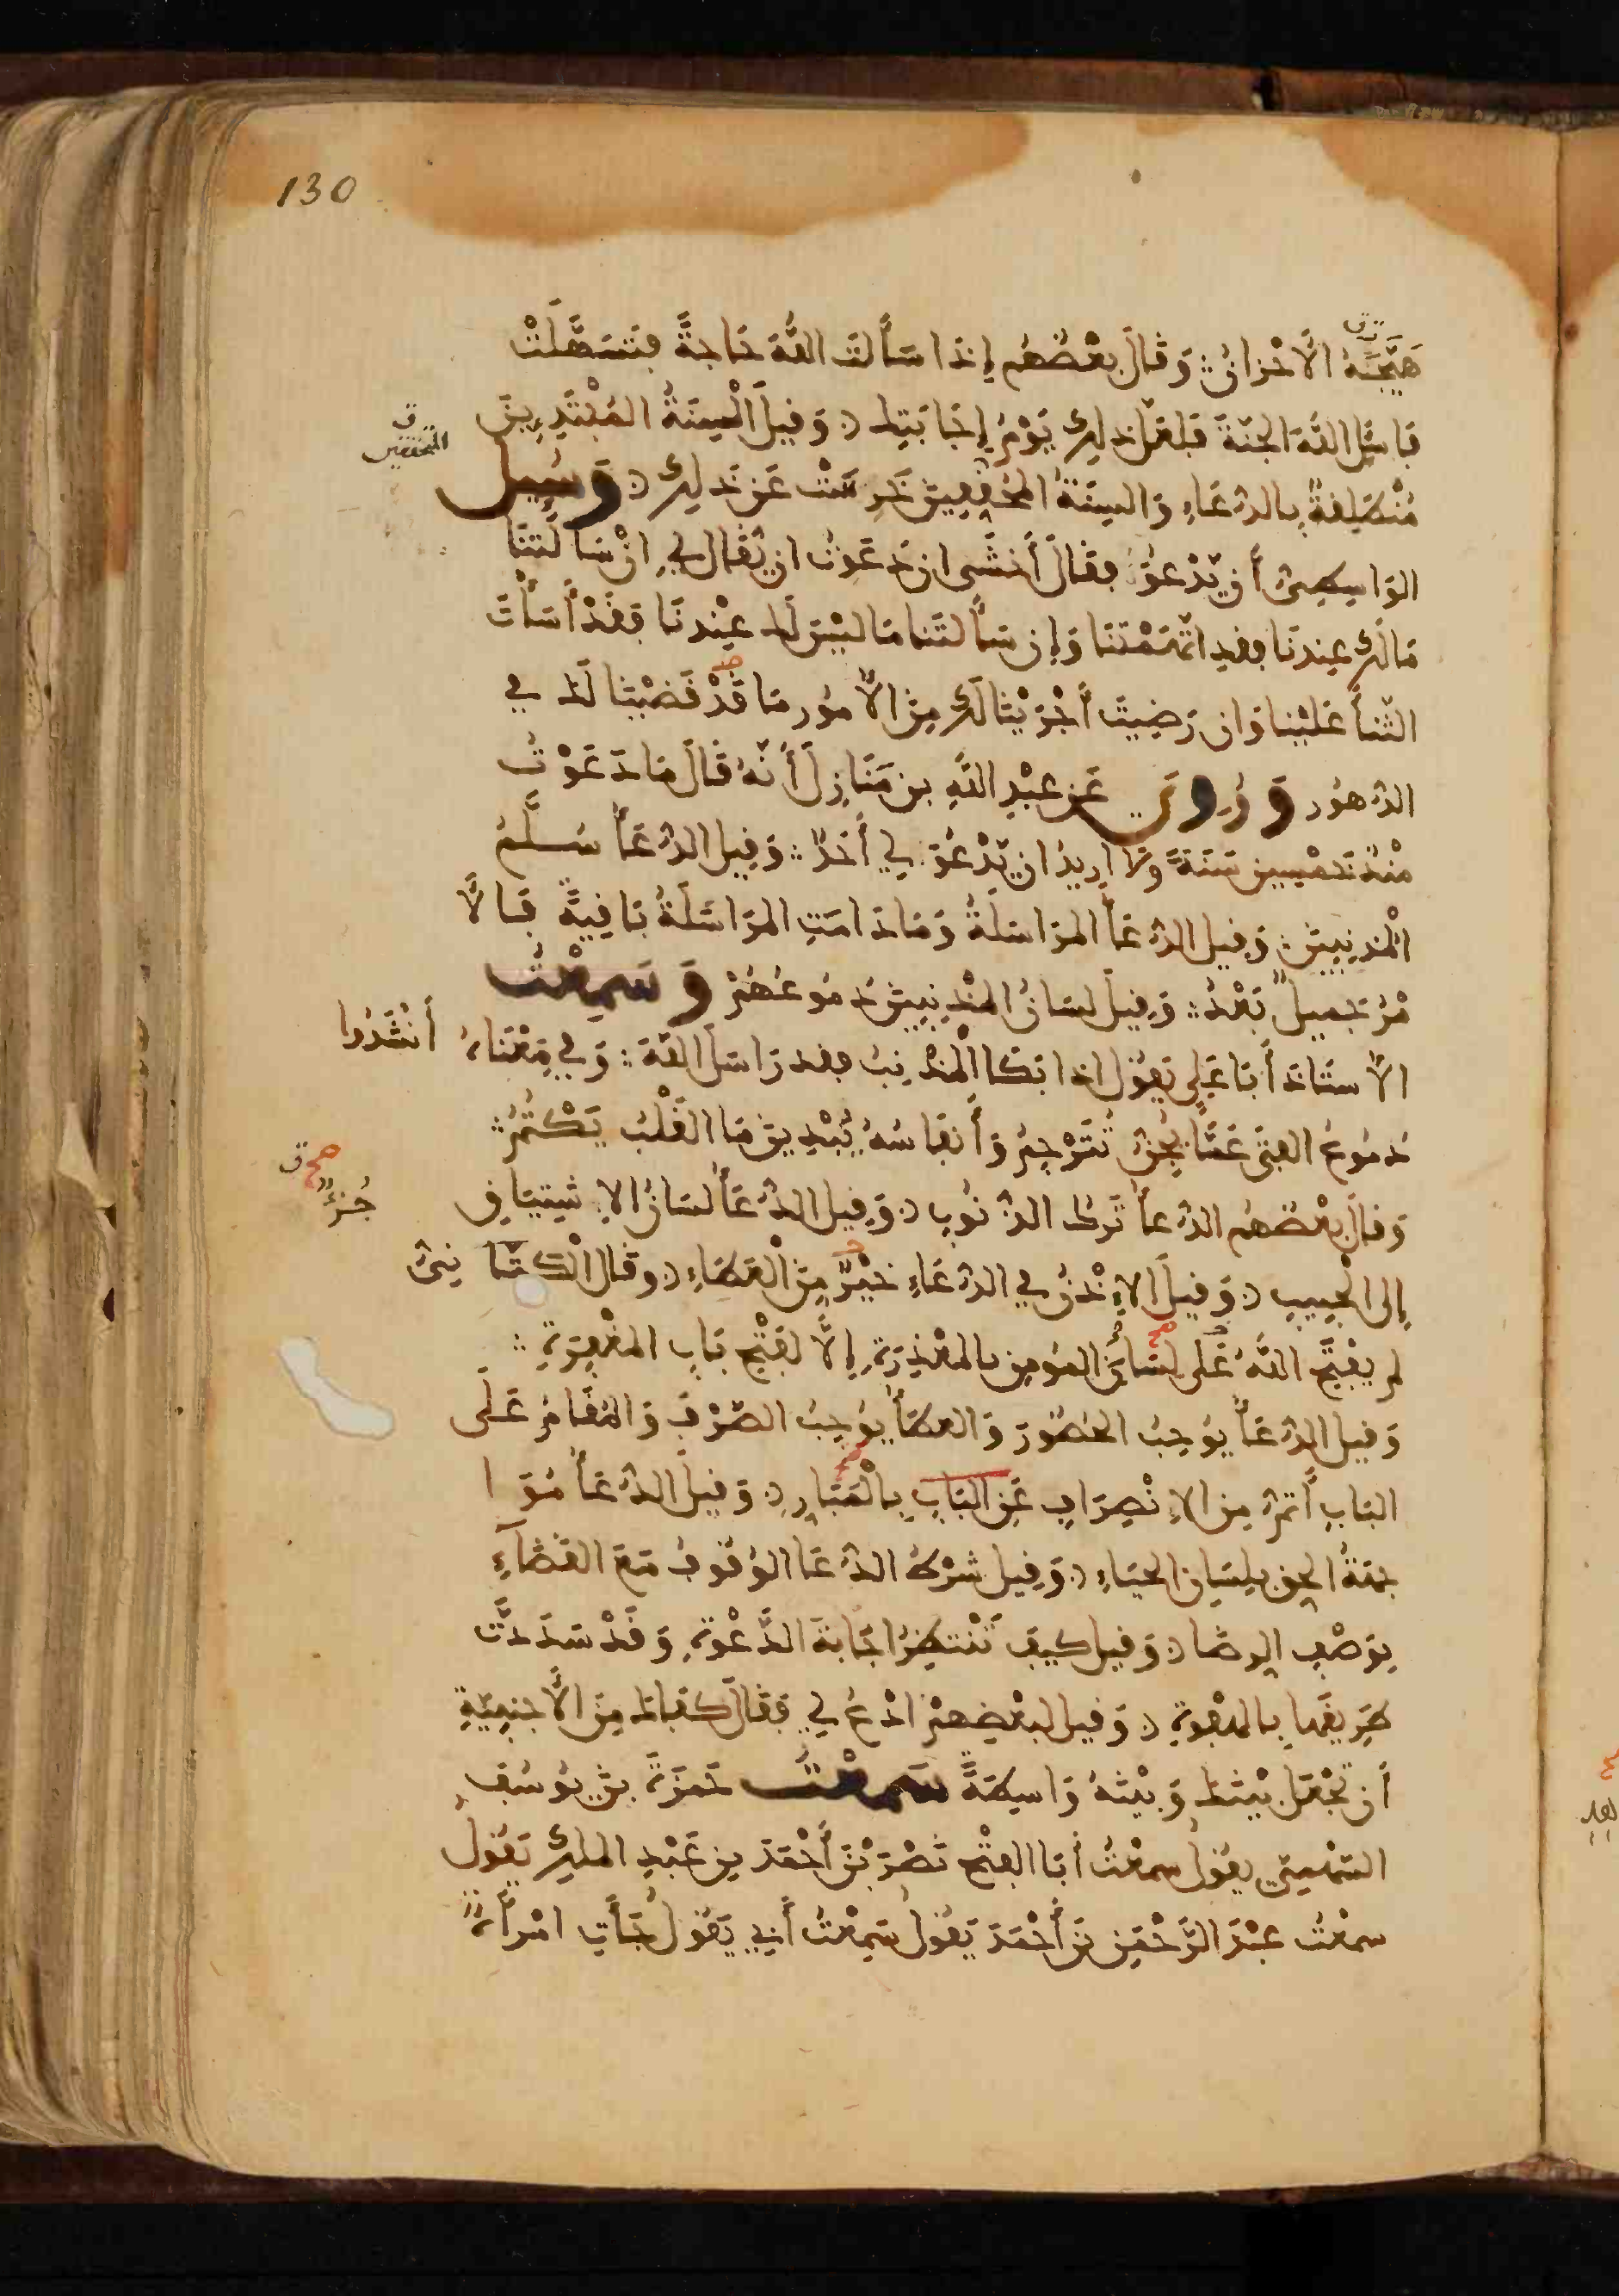 130
هَيَّجَتْهُ الأَحْزَانُ وَقَالَ بَعْضُهُم إِذَا سَأَلتَ اللَّهَ حَاجَةً فَتَسَهَّلَتْ
فَاسْأَلِ اللَّهَ الجَنَّةَ فَلَعَلَّ ذَلِكَ يَوْمُ إِجَابَتِكَ وَقِيلَ أَلْسِنَةُ المُبْتَدِءِينَ
المحققين ق
مُنْطَلِقَةٌ بِالدُّعَاءِ وَأَلسِنَةُ المُحَقِّقِينَ خَرِسَتْ عَن ذَلِكَ وَسُئِلَ
الوَاسِطِىُّ أَن يَّدْعُوَ فَقَالَ أَخْشَى ان دَعَوْتُ ان يُقَالَ لِي انْ سَأَلْتَنَا
مَا لَكَ عِندَنَا فَقَدِ اتَّهَمْتَنَا وَإِن سَأَلتَنَا مَا لَيْسَ لَكَ عِنْدَنَا فَقَدْ أَسَأْتَ
الثَّنَاَ عَلَيْنَا وَان رَضِيتَ أَجْرَيْنَا لَكَ مِنَ الأُمُورِ مَا قَدْ قَضَيْنَا لَكَ فِي
الدُّهُورِ وَرُوِيَ عَن عَبْدِ اللَّهِ بن مُنَازِل أَنَّهُ قَالَ مَا دَعَوْتُ
مُنْذُ خَمْسِينَ سَنَةً وَلاَ أُرِيدُ ان يَّدْعُوَ لِي أَحَدٌ وَقِيلَ الدُّعَاُ سُلَّمُ
الْمُذنِبِينَ وَقِيلَ الدُّعَاُ المُرَاسَلَةُ وَمَا دَامَتِ المُرَاسَلَةُ بَاقِيَةً فَالأَ
مْرُ جَمِيلٌ بَعْدُ وَقِيلَ لِسَانُ المُذْنِبِينَ دُمُوعُهُمْ وَسَمِعْتُ
الأُسْتَاذَ أَبَا عَلِي يَقُولُ اذَا بَكَا الْمُذْنِبُ فَقَد رَاسَلَ اللَّهَ وَفِي مَعْنَاهُ أَنْشَدُوا
دُمُوعُ الفَتَى عَمَّا يُجِنُّ تُتَرْجِمُ وَأَنفَاسُهُ يُبْدِينَ مَا القَلْبُ يَكْتُمُ
وَقَالَ بَعْضُهُم الدُّعَاُ تَركُ الذُّنُوبِ وَقِيلَ الدُّعَاُ لِسَانُ الاِشْتِيَاقِ
صح ق
خَيْرٌ
إِلى الْحَبِيبِ وَقِيلَ الإِذْنُ فِي الدُّعَاءِ خَيْرٌ مِنَ الْعَطَاءِ وَقَالَ الكَتَّانِىُّ
لم يَفْتَحِ اللَّهُ عَلَى لِسَانِ المُومِنِ بِالمَعْذِرَةِ إِلاَّ لِفَتْحِ بَابِ المَغْفِرَةِ
وَقِيلَ الدُّعَاُ يُوجِبُ الحُضُورَ وَالعَطَاُ يُوجِبُ الصَّرْفَ وَالمُقَامُ عَلَى
البَابِ أَتَمُّ مِنَ الاِنْصِرَافِ عَنِ البَابِ بِالْمَبَارِ وَقِيلَ الدُّعَاُ مُوَا
جَهَةُ الحَقِ بِلِسَانِ الحَيَاءِ وَقِيلَ شَرْطُ الدُّعَا الوُقُوفُ مَعَ القَضَآءِ
بِوَصْفِ الرِضَا وَقِيلَ كَيفَ تَنْتَظِرُ اجَابَةَ الدَّعْوَةِ وَقَدْ سَدَدتَّ
طَرِيقَهَا بِالهَفْوَةِ وَقِيلَ لِبَعْضِهِمْ ادْعُ لِي فَقَالَ كَفَاكَ مِنَ الأَجْنَبِيَّةِ
أَن تَجْعَلَ بَيْنَكَ وَبَيْنَهُ وَاسِطَةً سَمِعْتُ حَمزَةَ بنَ يُوسُفَ
السَّهْمِيَّ يَقُولُ سَمِعْتُ أَبَا الفَتْحِ نَصْرَ بْنَ أَحْمَدَ بنِ عَبْدِ المَلِكِ يَقُولُ
سَمِعْتُ عَبْدَ الرَّحْمَنِ بنَ أَحْمَدَ يَقُولُ سَمِعْتُ أَبِي يَقُولُ جَاَتِ امْرَأَةٌ